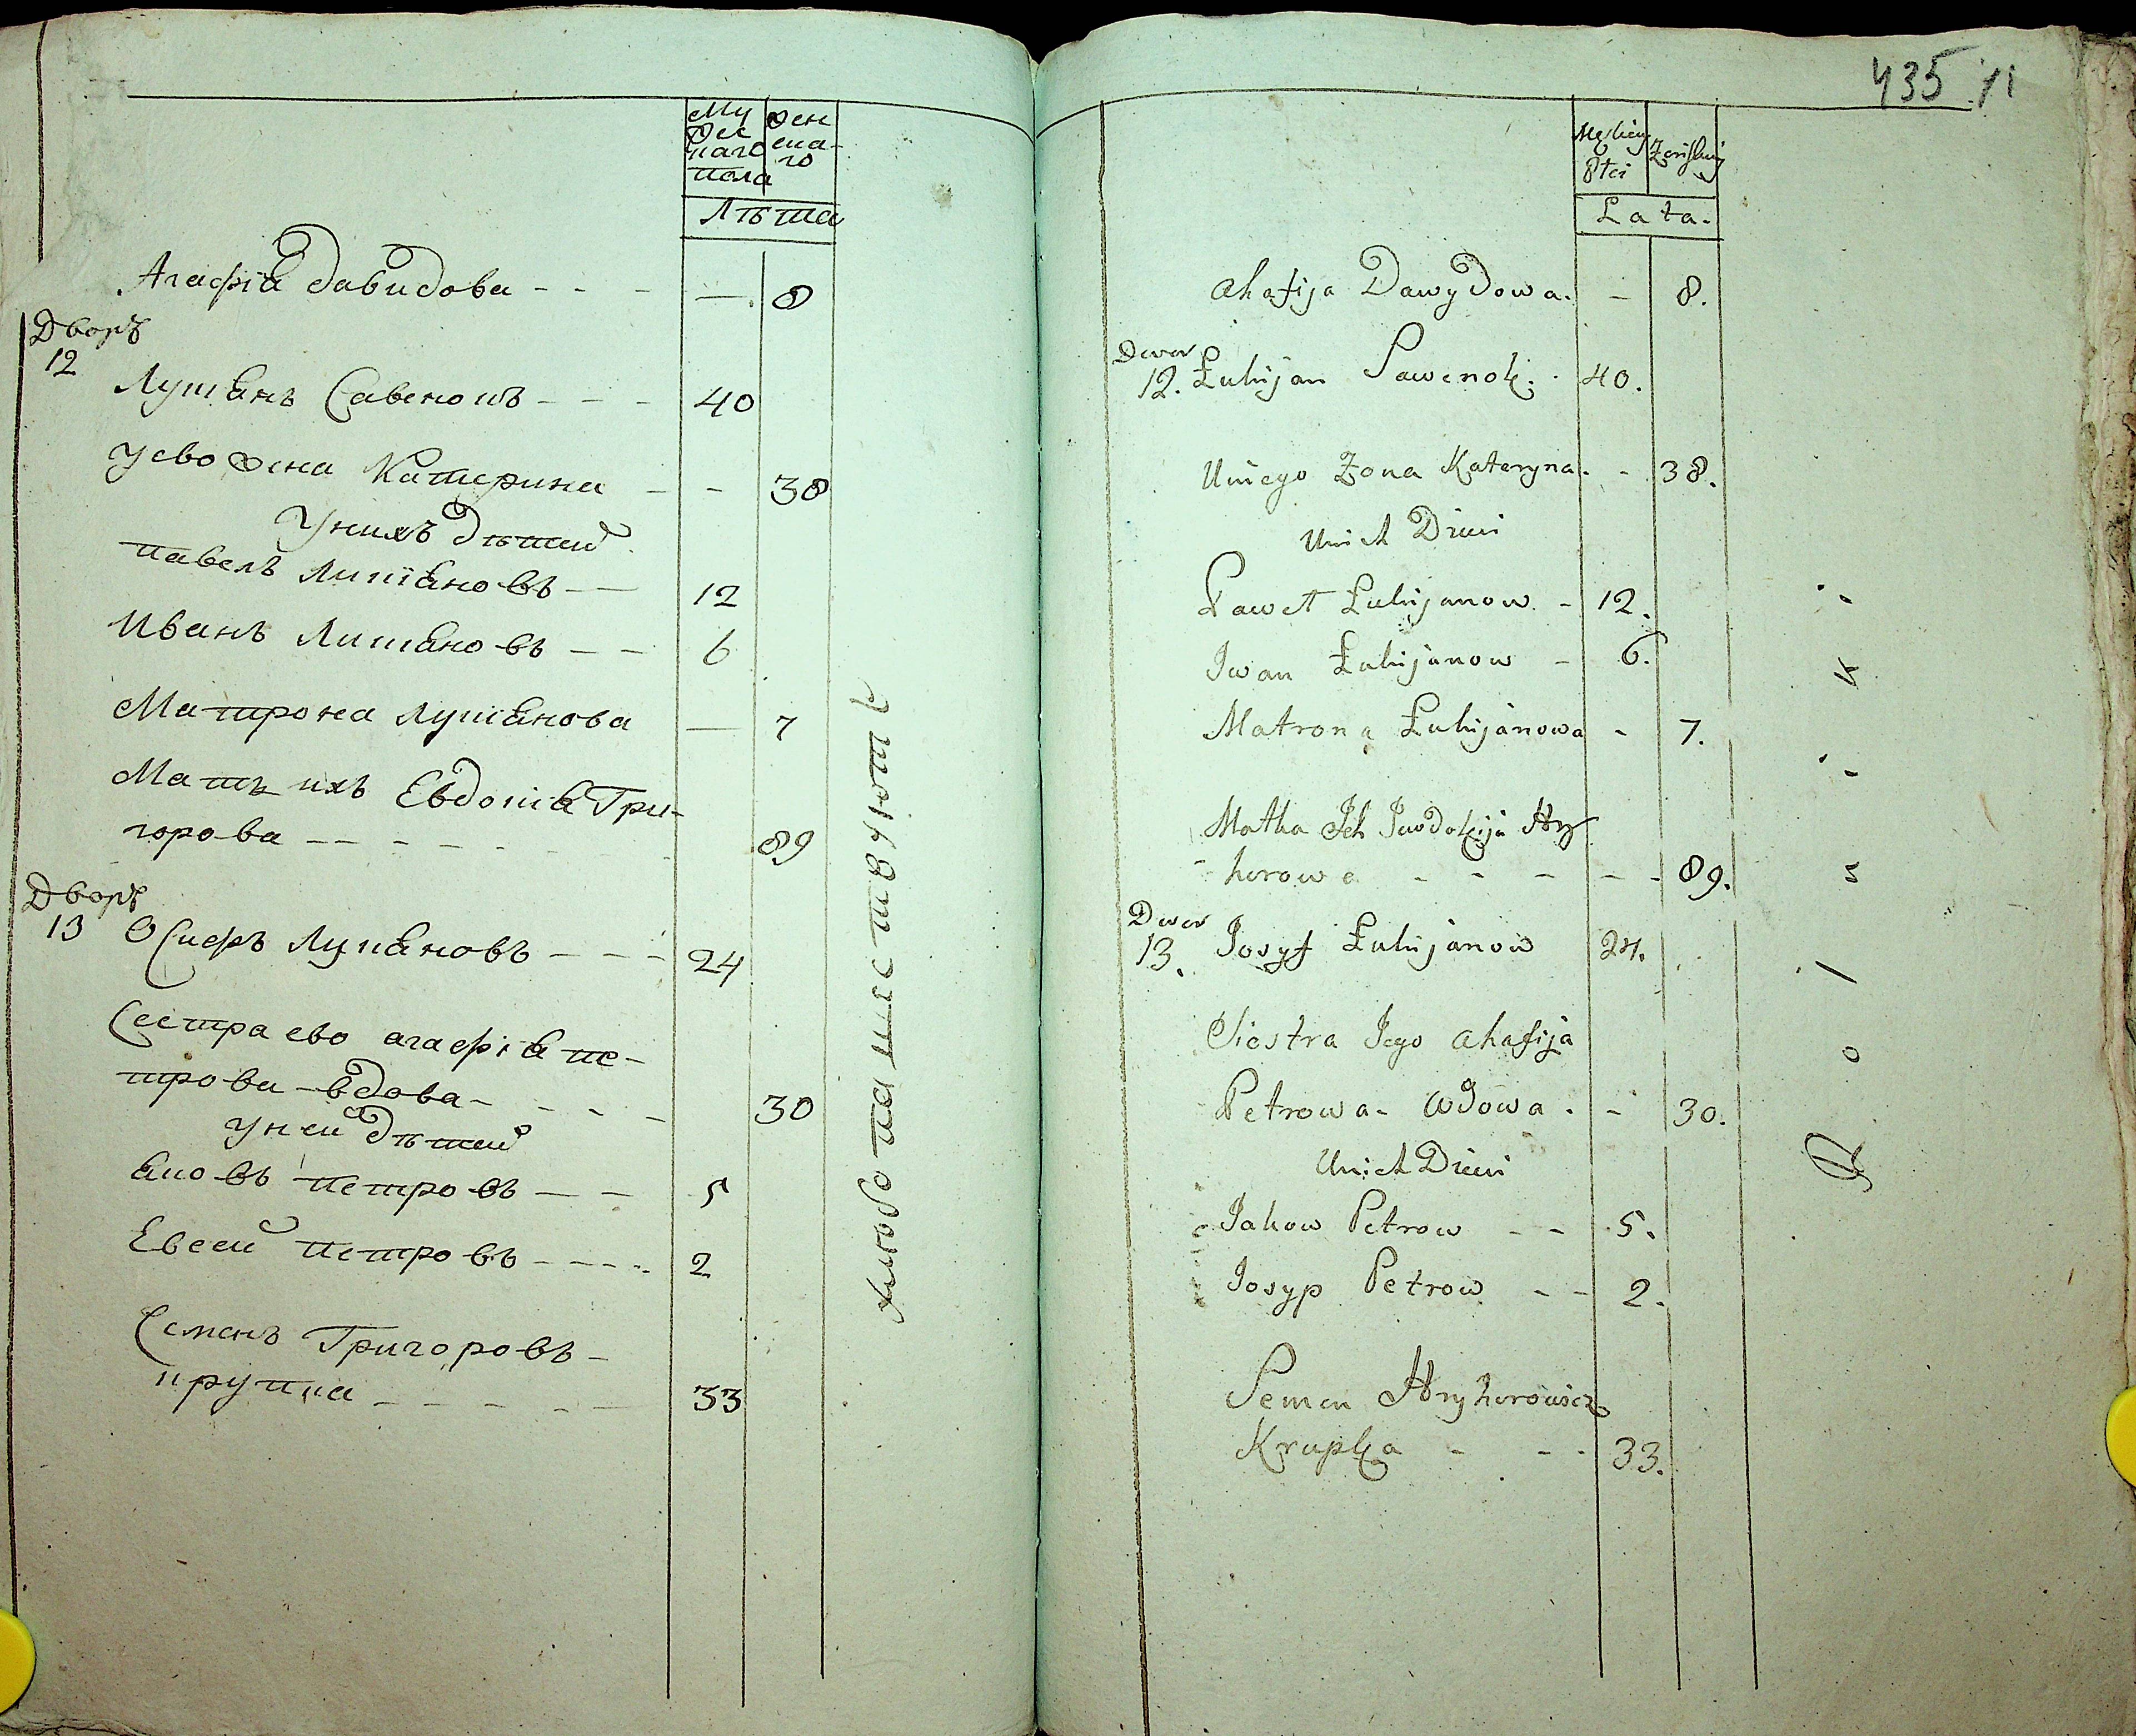 Му жес наго пола
жен ска- го
Лѣта
Агафія давидова - - - — 8
Дворъ
12
Лукіянъ Савенокъ - - - 40
Уево жена Катерина - - 38
Унихъ дѣтей
павелъ Лукіяновъ - - 12
Иванъ Лукіяновъ - - 6
Матрона лукіянова — 7
Мать ихъ Евдокія Гри-
горова - - - - - 89
Дворъ
13 Осифъ Лукіяновъ - - - 24
Сестра ево агафія пе-
трова - вдова - - - - 30
Уней дѣтей
яковъ петровъ - - 5
Евсей петровъ - - - - 2
Семенъ Григоровъ -
крупка - - - - - 33
хлебопашествуютъ
435 71
Męskiey Płci
Żeńskiey
Lata.
Ahafija Dawydowa. - 8.
Dwor
12. Łukijan Sawenok. 40.
Uniego Żona Kateryna. - 38.
Unich Dzieci
Paweł Łukijanow - 12.
Iwan Łukijanow - 6.
Matrona Łukijanowa - 7.
Matka Ich Jewdokija Hry
horowa - - - - - 89.
Dwor
13. Josyf Łukijanow 24.
Siostra Jego Ahafija
Petrowa - Wdowa. - 30.
Unich Dzieci
Jakow Petrow - - 5.
Josyp Petrow - - 2.
Semen Hryhorowicz
Krupka - - - 33.